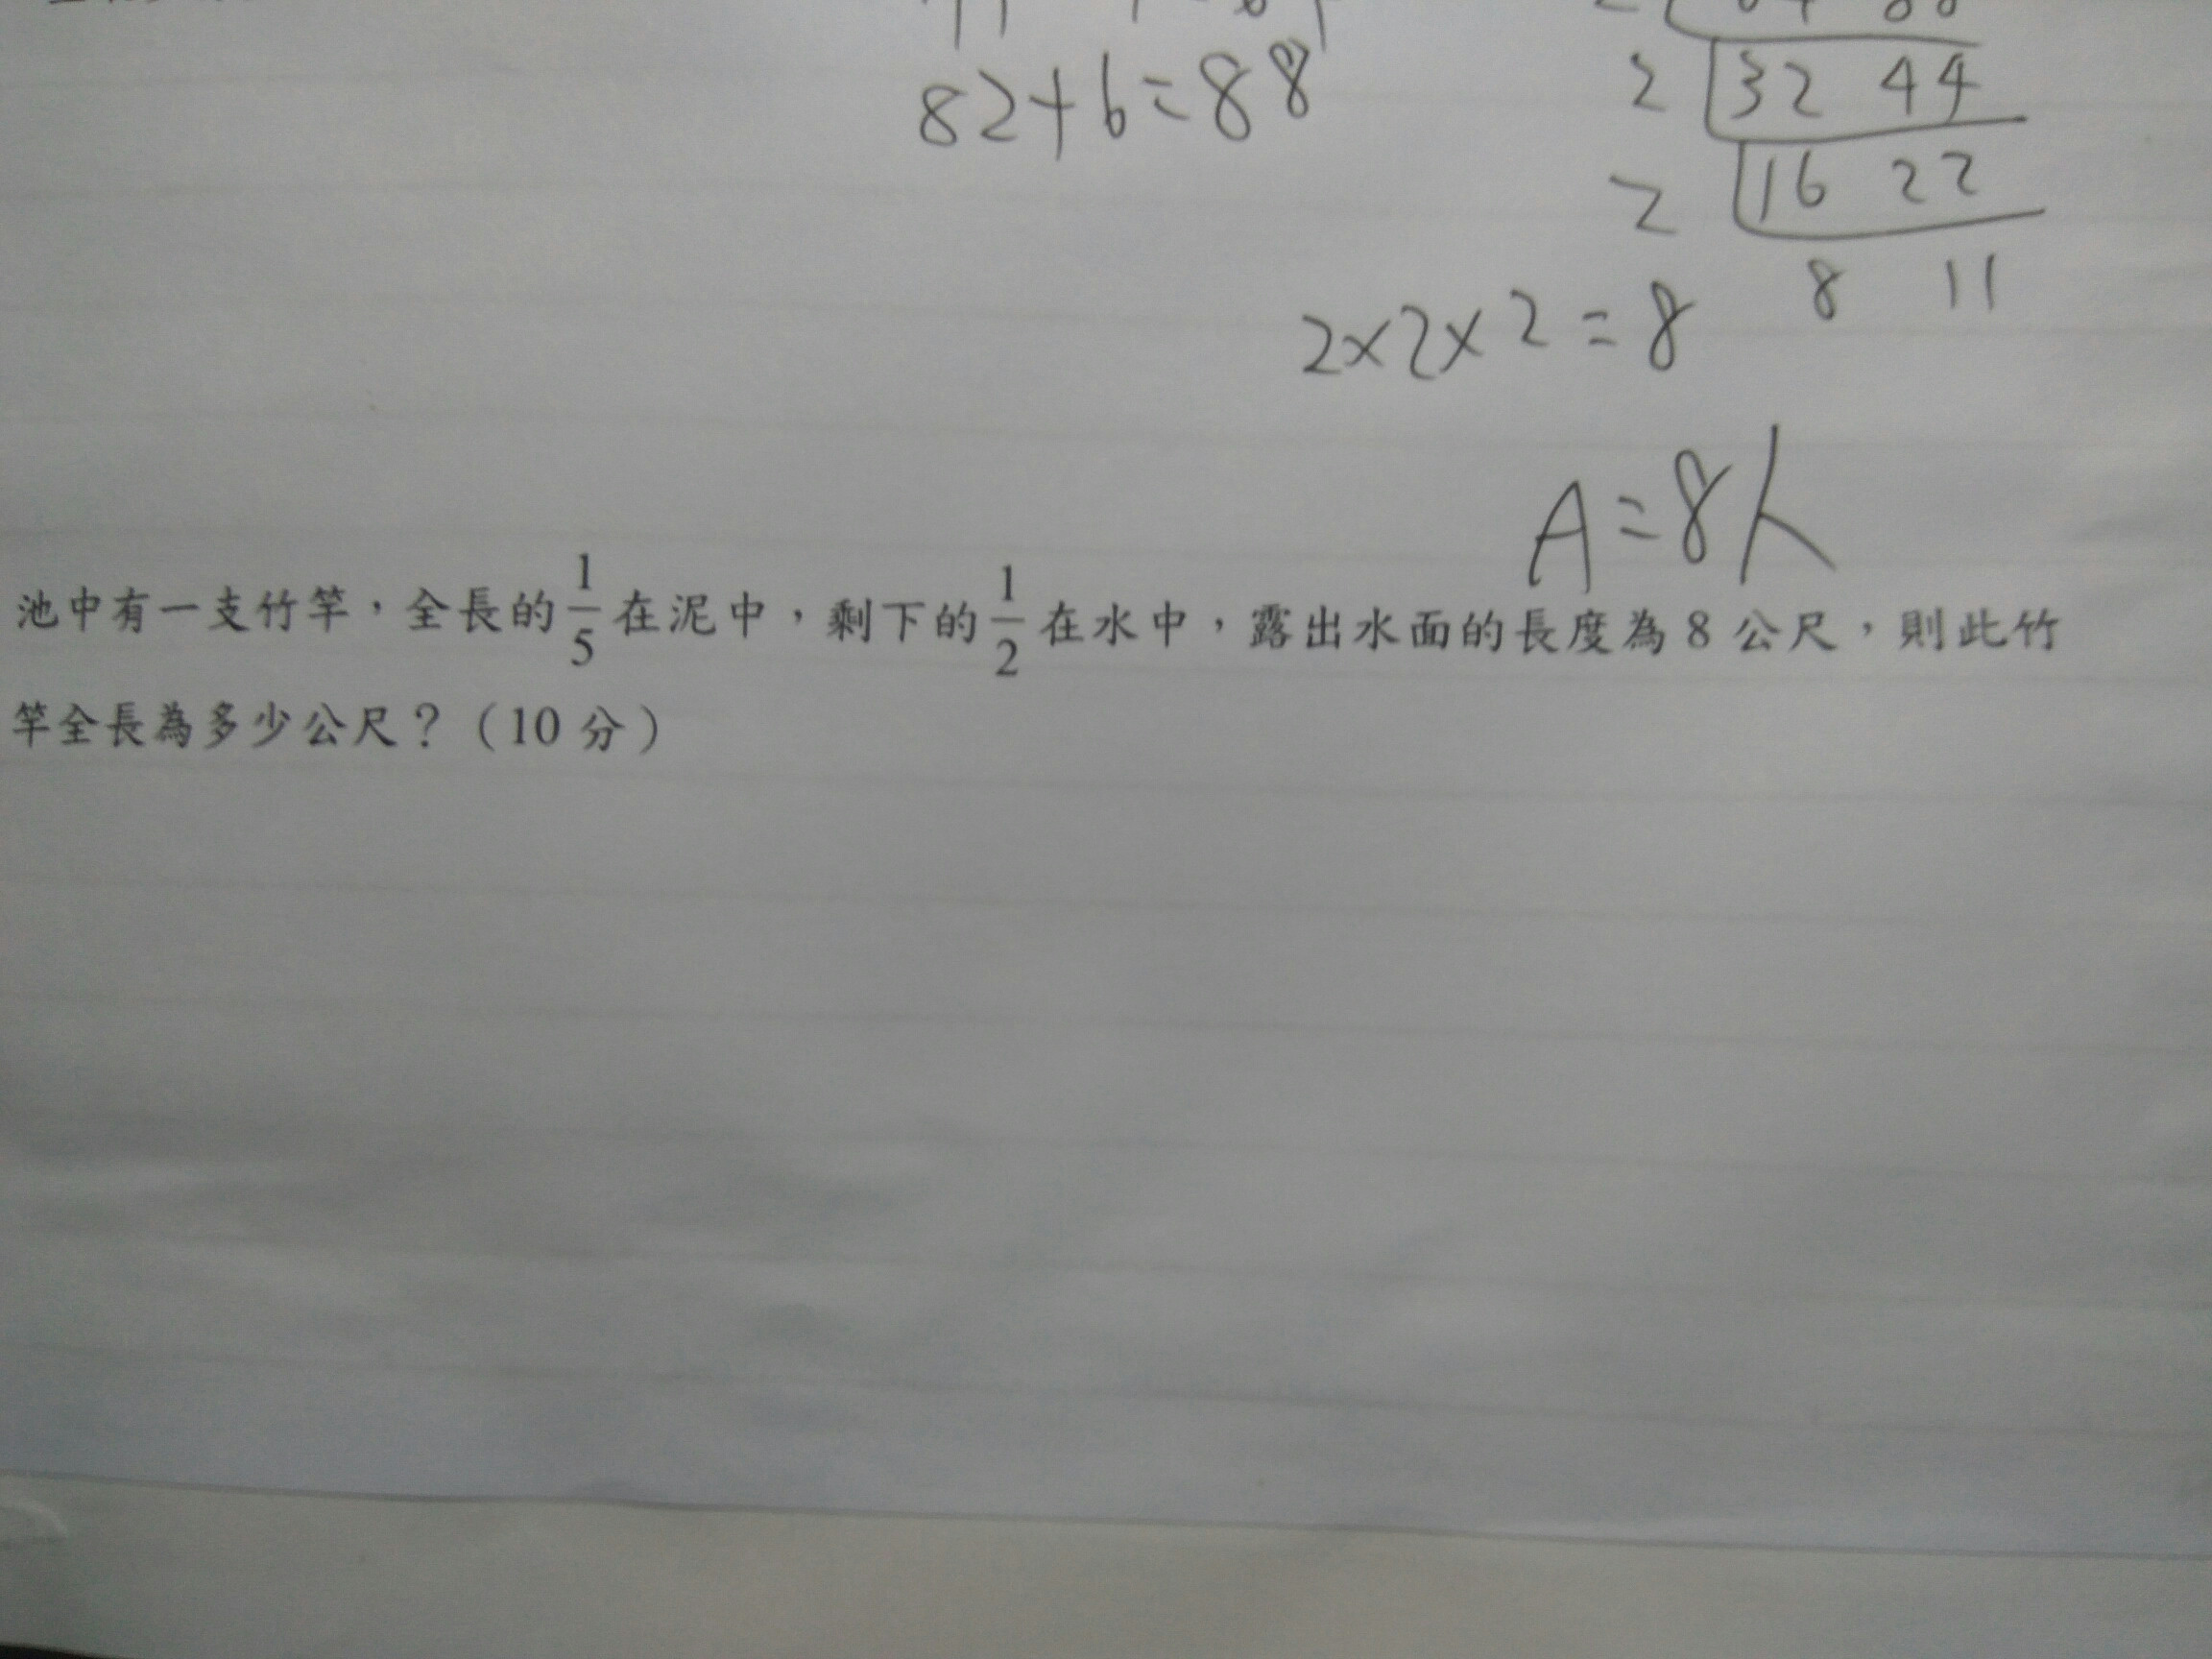 82+6=88
2 32 44
2 16 22
8 11
2×2×2=8
A=8人
池中有一支竹竿，全長的1/5在泥中，剩下的1/2在水中，露出水面的長度為8公尺，則此竹
竿全長為多少公尺？（10分）